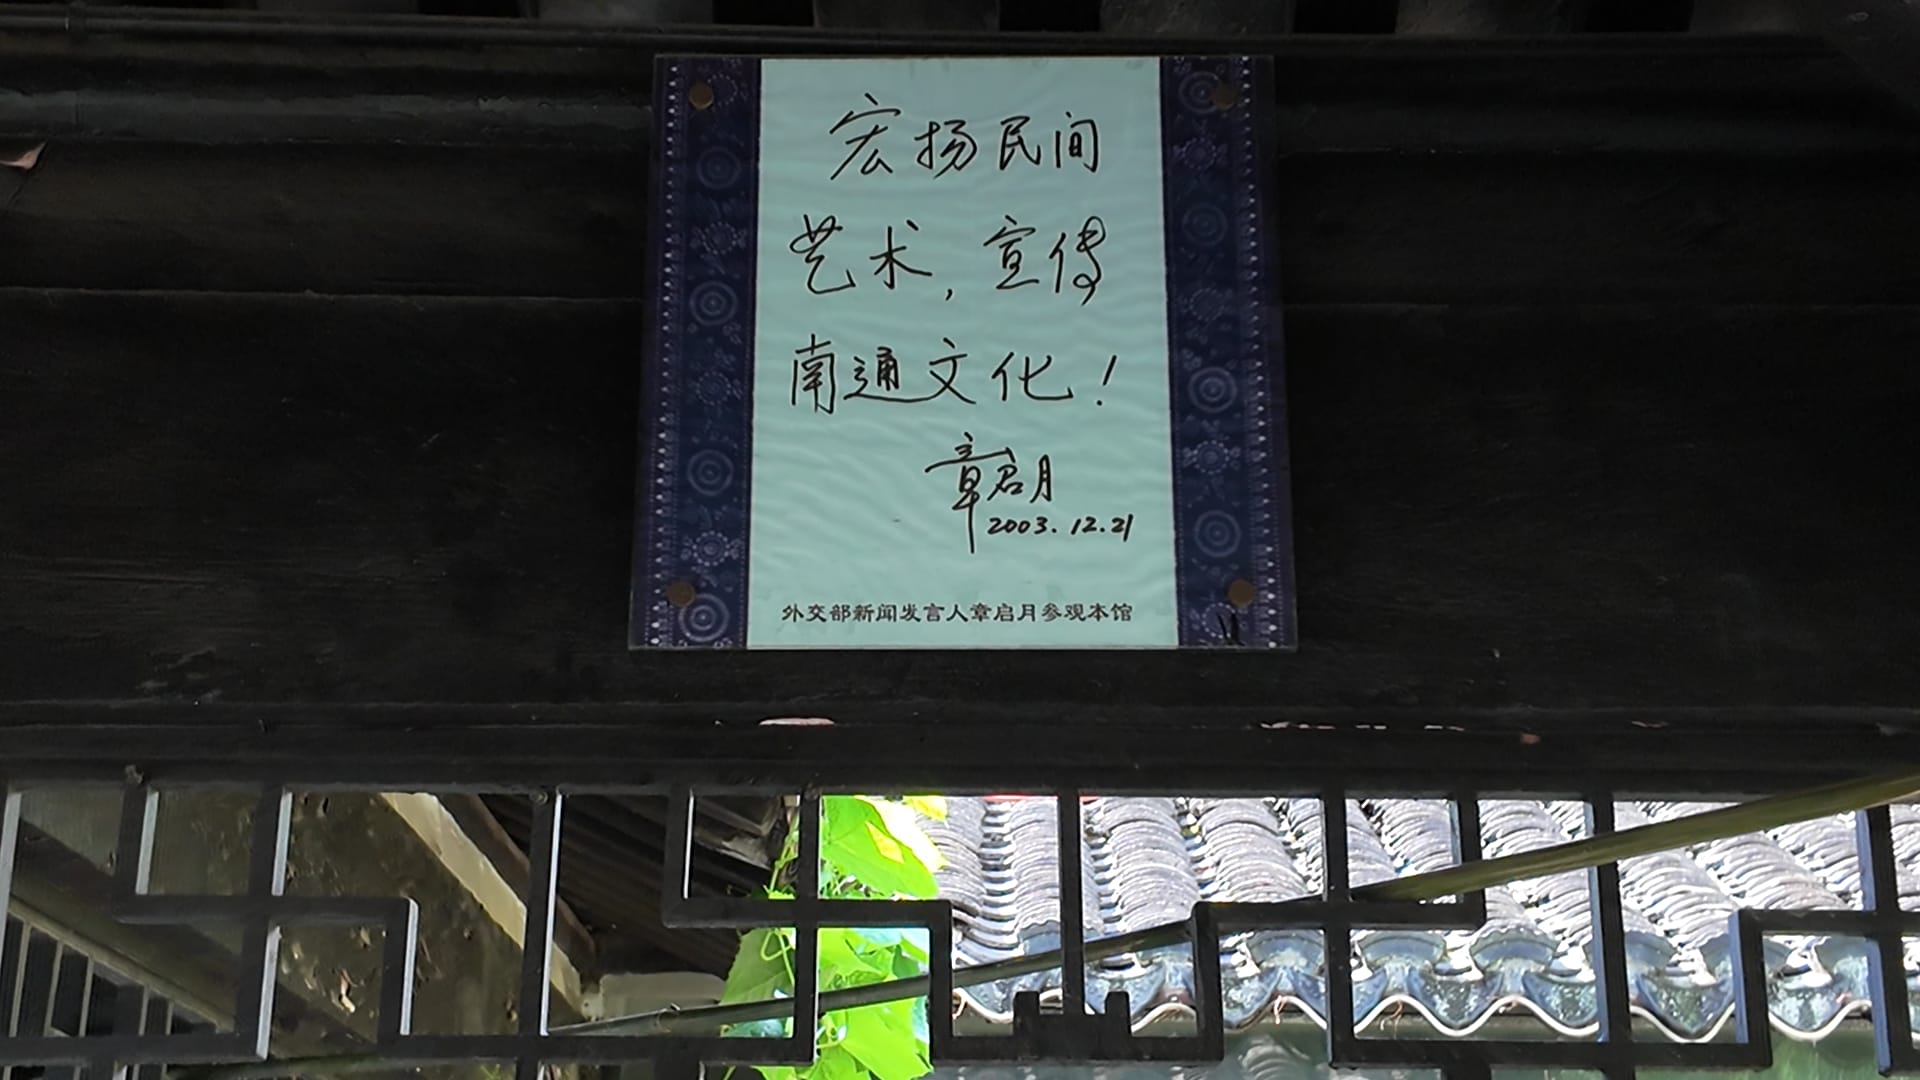 宏扬民间
艺术，宣传
南通文化！
章启月
2003.12.21
外交部新闻发言人章启月参观本馆